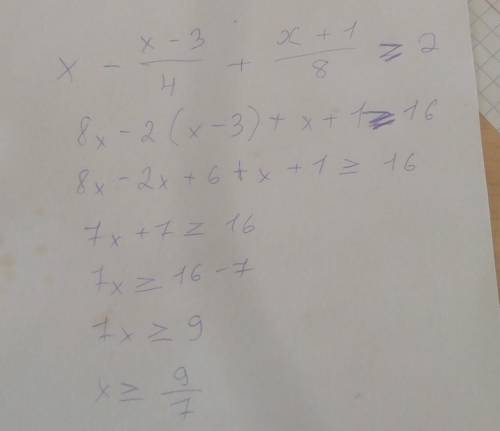 x - \frac{x-3}{4} + \frac{x+1}{8} ≥ 2
8x - 2(x-3) + x + 1 ≥ 16
8x - 2x + 6 + x + 1 ≥ 16
7x + 7 ≥ 16
7x ≥ 16 - 7
7x ≥ 9
x ≥ \frac{9}{7}